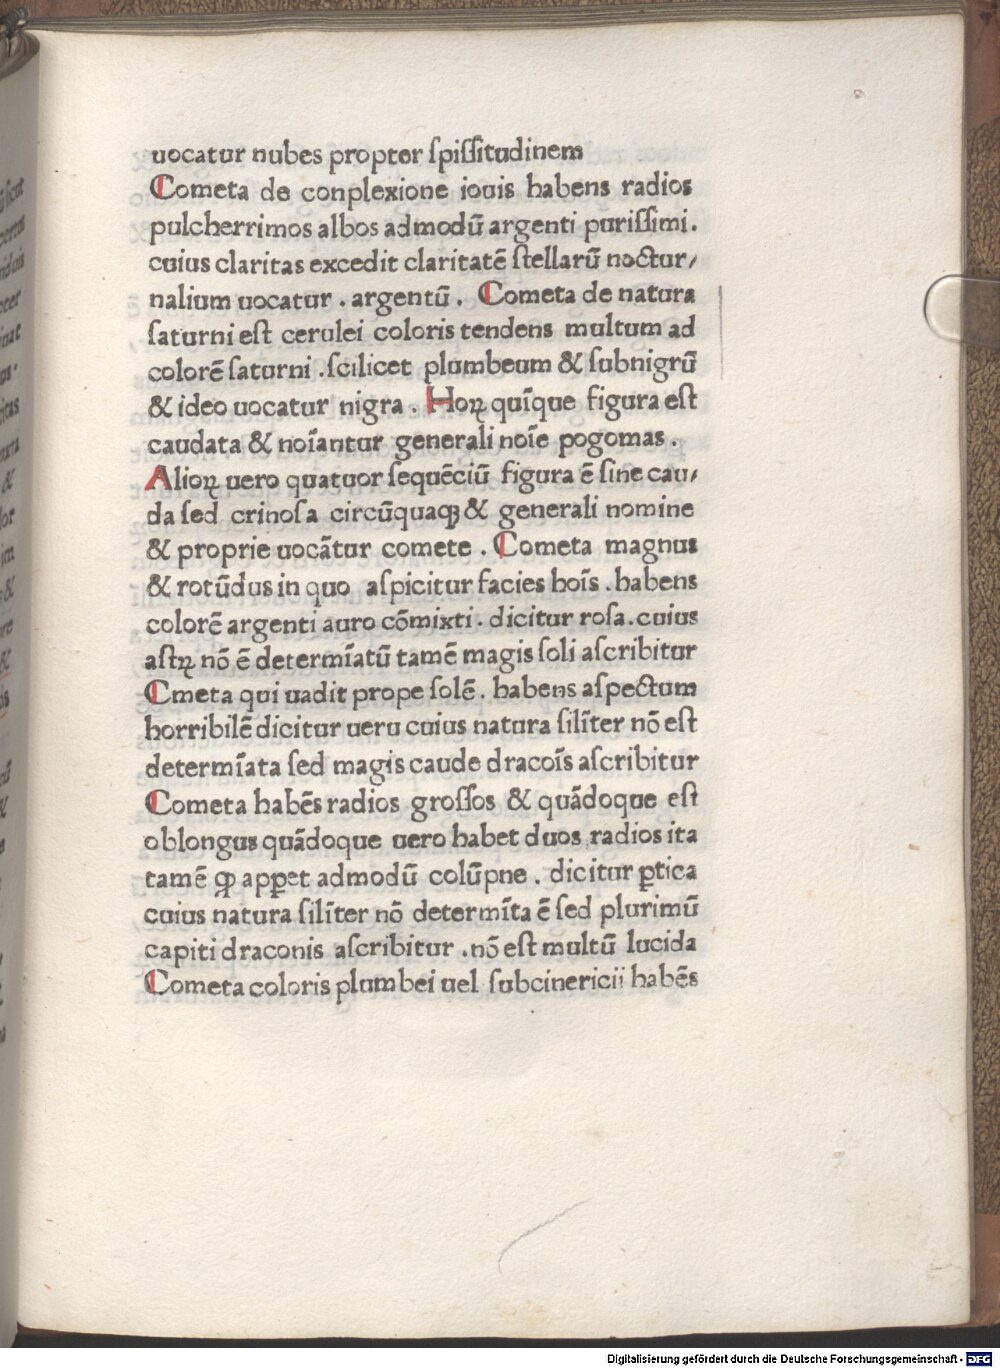 uocatur nubes propter ſpiſſitudinem
Cometa de conplexione iouis habens radios
pulcherrimos albos admodū argenti puriſſimi.
cuius claritas excedit claritatē ſtellarū noctur/
nalium uocatur . argentū . Cometa de natura
ſaturni eſt cerulei coloris tendens multum ad
colorē ſaturni .ſcilicet plumbeum & ſubnigrū
& ideo uocatur nigra . Hoꝝ quīque figura eſt
caudata & noīantur generali noīe pogomas .
Alioꝝ uero quatuor ſequēciū figura ē ſine cau/
da ſed crinoſa circūquaqꝫ & generali nomine
& proprie uocātur comete . Cometa magnus
& rotūdus in quo aſpicitur facies hoīs . habens
colorē argenti auro cōmixti . dicitur roſa . cuius
aſtꝝ nō ē determīatū tamē magis ſoli aſcribitur
Cmeta qui uadit prope ſolē . habens aſpectum
horribilē dicitur ueru cuius natura ſilīter nō eſt
determīata ſed magis caude dracoīs aſcribitur
Cometa habēs radios groſſos & quādoque eſt
oblongus quādoque uero habet duos radios ita
tamē ꝙ apꝑet admodū colūpne . dicitur ꝑtica
cuius natura ſilīter nō determīta ē ſed plurimū
capiti draconis aſcribitur .nō eſt multū lucida
Cometa coloris plumbei uel ſubcinericii habēs
Digitalisierung gefördert durch die Deutsche Forschungsgemeinschaft - DFG